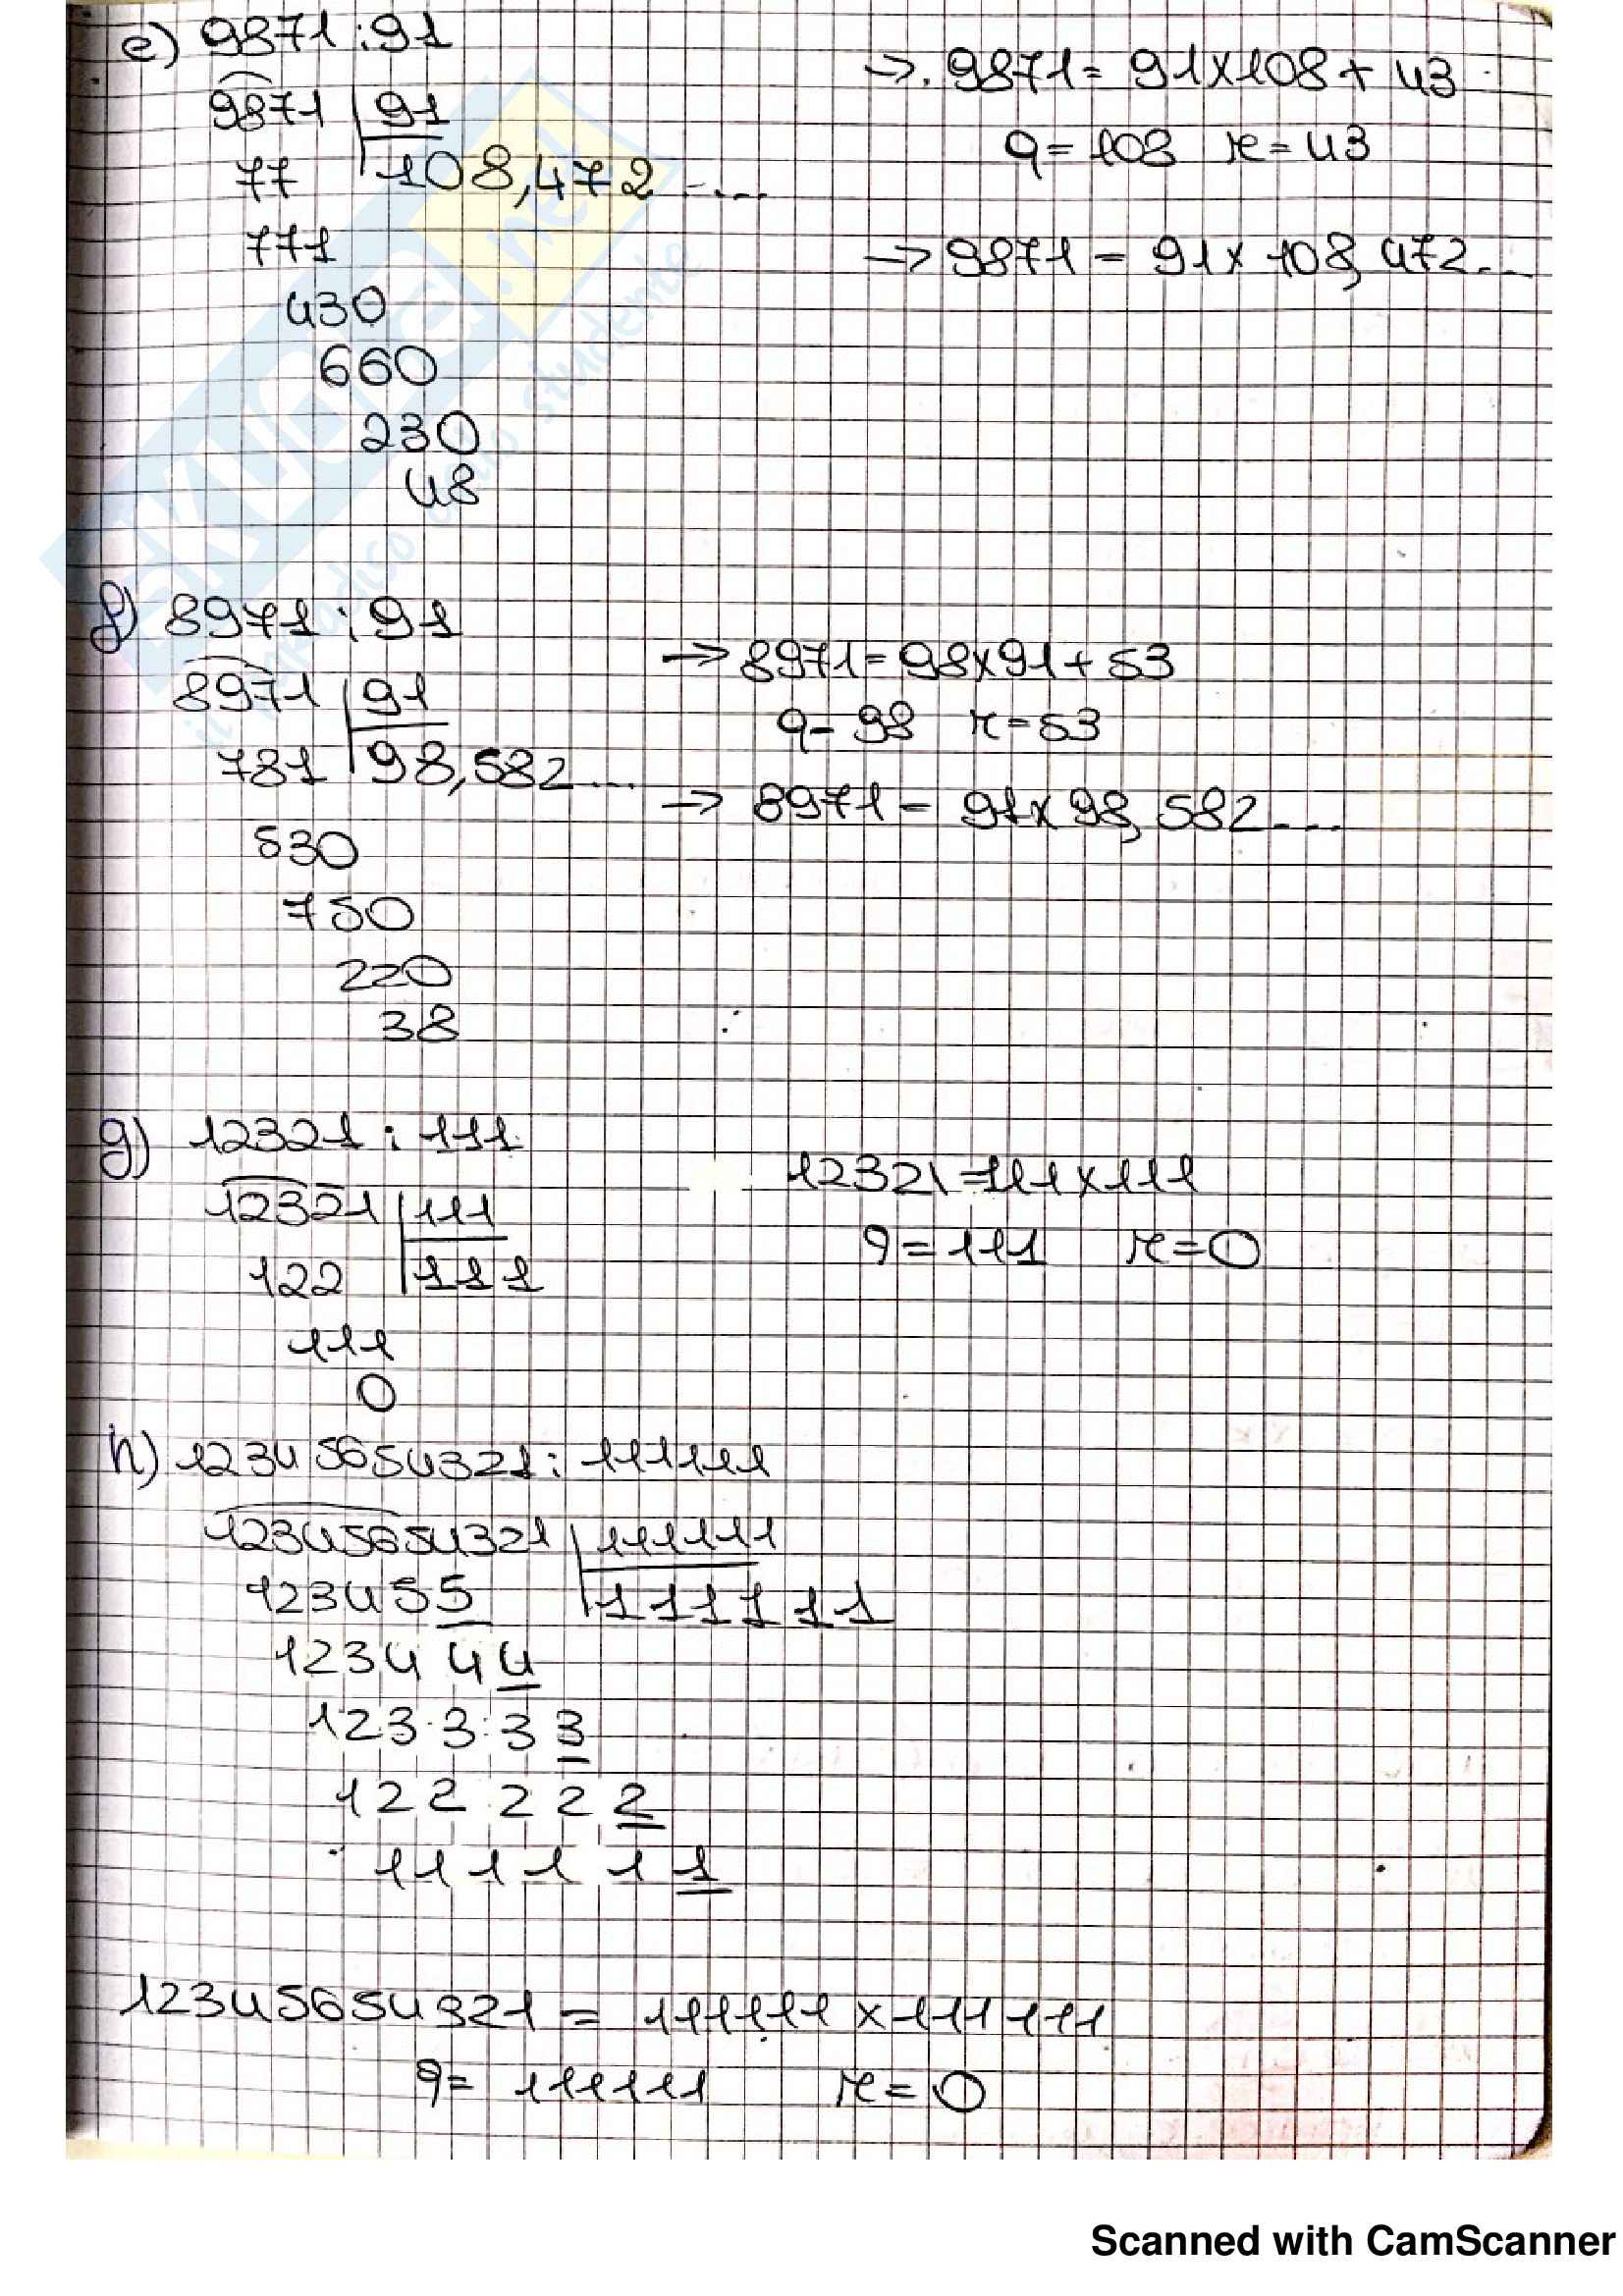 e) 9871 : 91
9871 | 91
77 108,472 ....
771
430
660
230
48
→ 9871 = 91 x 108 + 43
q = 108 r = 43
→ 9871 = 91 x 108,472...
f) 8971 : 91
8971 | 91
781 98,582...
530
750
220
38
→ 8971 = 98 x 91 + 53
q = 98 r = 53
→ 8971 = 91 x 98,582...
g) 12321 : 111
12321 | 111
122 111
111
0
12321 = 111 x 111
q = 111 r = 0
h) 12345654321 : 111111
12345654321 | 111111
123455 111111
123444
123333
122222
111111
12345654321 = 111111 x 111111
q = 111111 r = 0
SKUOLA.net
il paradiso dello studente
Scanned with CamScanner